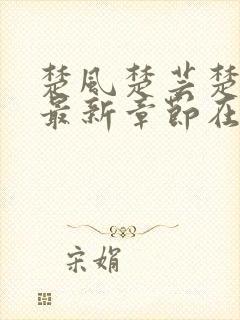 楚风楚芸楚
最新章节在
宋娟